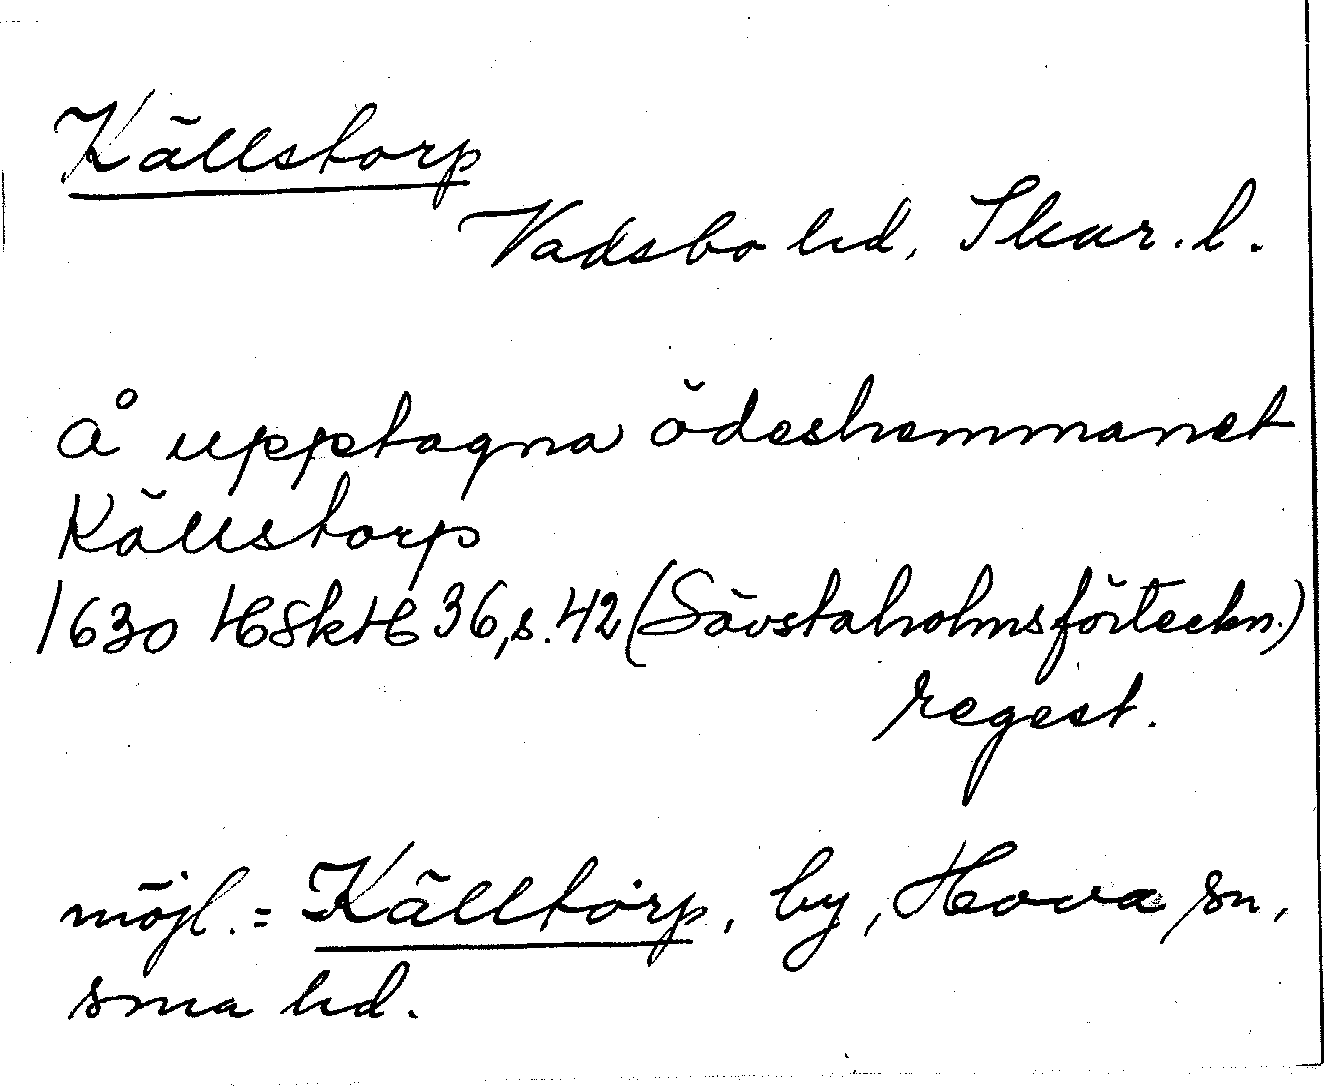 Källstorp
Vadsbo hd, Skar. l.
å upptagna ödeshemmanet
Källstorp
1630 HSkH 36, s. 42 (Sävstaholmsförteckn.)
regest.
möjl. = Källtorp, by, Hova sn,
sma hd.